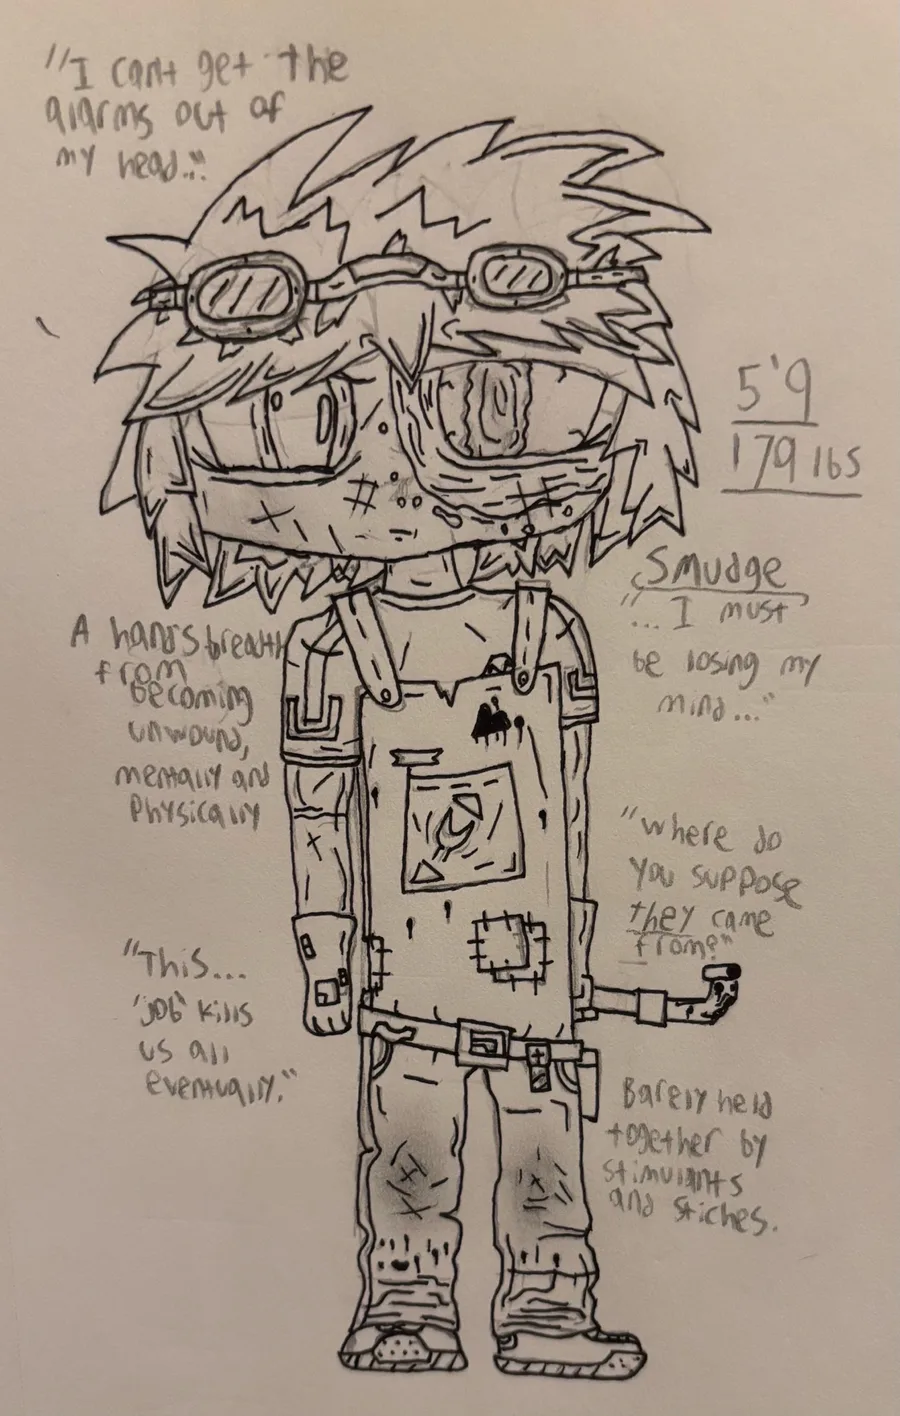 "I cant get the
alarms out of
my head..."
5'9
179 lbs
Smudge
"... I must
be losing my
mind..."
A hands breadth
from
becoming
unwound,
mentally and
Physically
"Where do
you suppose
they came
from?"
"This...
'job' kills
us all
eventually."
Barely held
together by
stimulants
and stiches.